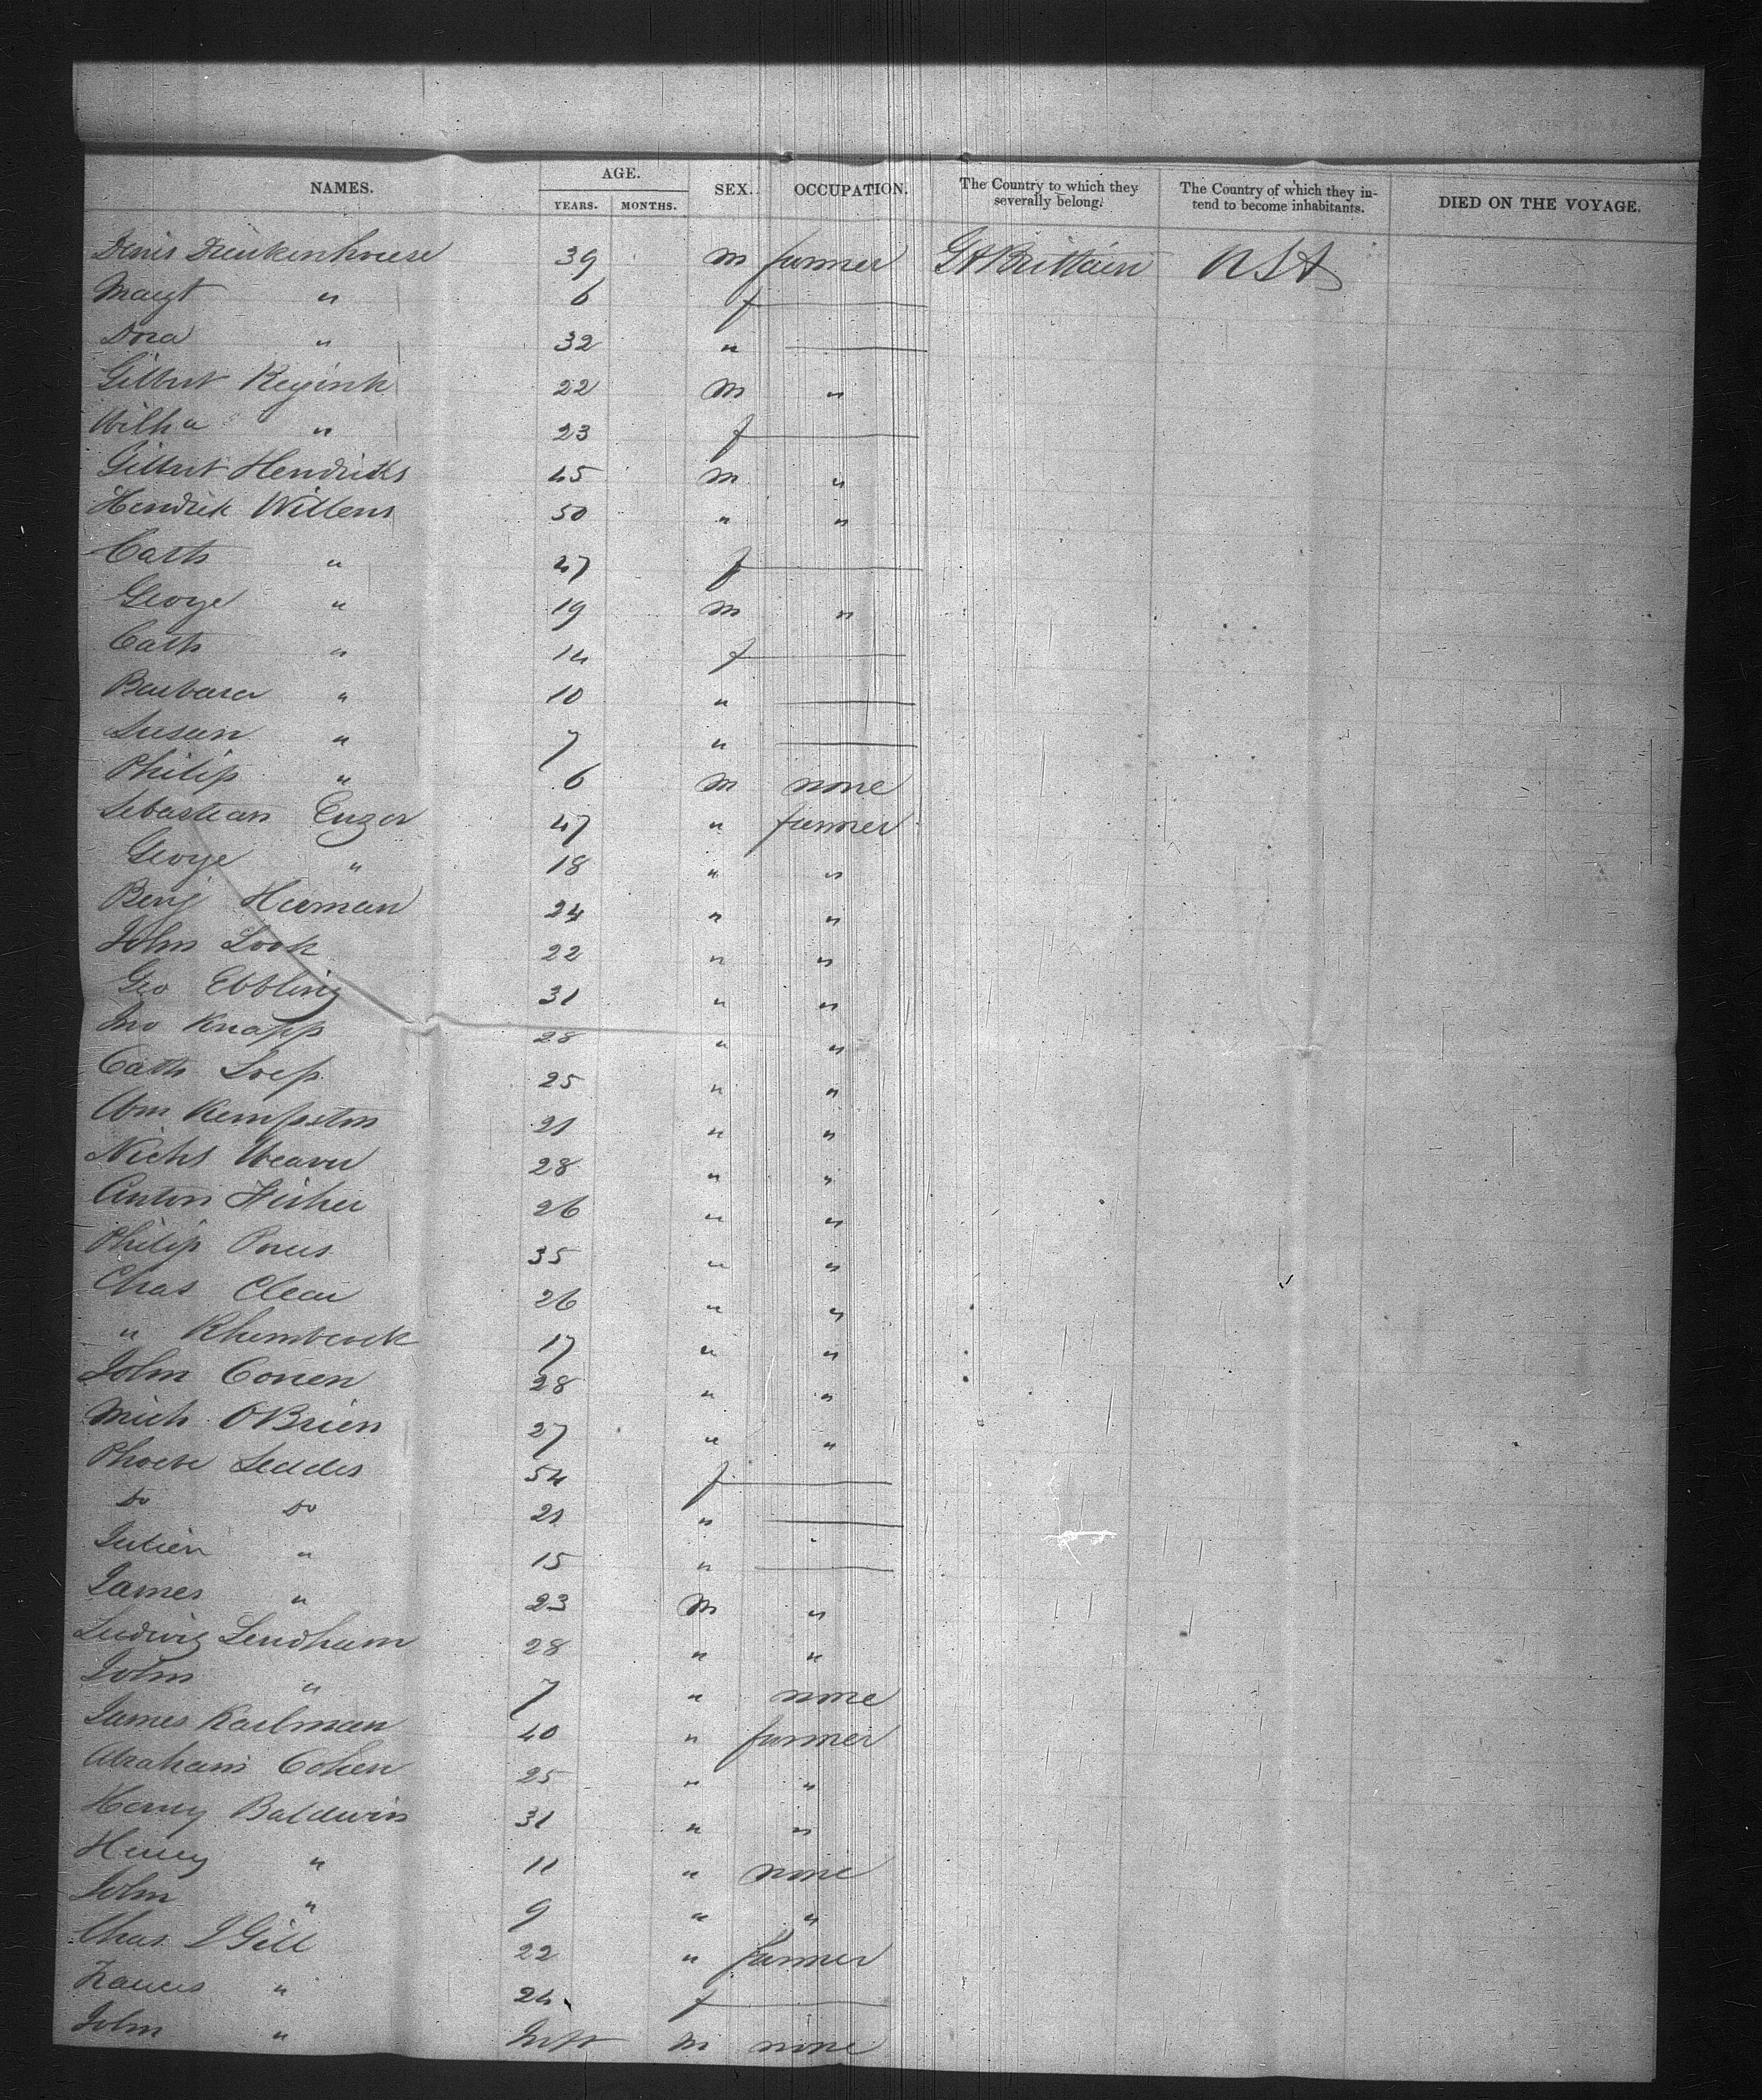 NAMES. AGE. SEX. OCCUPATION. The Country to which they severally belong. The Country of which they intend to become inhabitants. DIED ON THE VOYAGE.
YEARS. MONTHS.
Denis Drinkenhouse 39 m farmer Gt Brittain USA
Margt " 6 f
Dora " 32 "
Gilbert Regink 22 m "
Wilha " 23 f
Gilbert Hendricks 45 m "
Hendrik Willens 50 " "
Cath " 47 f
George " 19 m "
Cath " 14 f
Barbara " 10 "
Susan " 7 "
Philip " 6 m none
Sebastian Enzor 47 " farmer
George " 18 " "
Benj Herman 24 " "
John Look 22 " "
Geo Ebbling 31 " "
Jno Knapp 28 " "
Cath Loep 25 " "
Wm Kempston 21 " "
Nichs Weaver 28 " "
Anton Fisher 26 " "
Philip 35 " "
Chas Clear 26 " "
" Rhembeck 17 " "
John Conen 28 " "
Mich OBrien 27 " "
Phoebe Seddes 54 f
Do Do 21 "
Julien " 15 "
James " 23 m "
Ludwig Lendham 28 " "
John " 7 " none
James Kailman 40 " farmer
Abraham Cohen 25 " "
Henry Baldwin 31 " "
Henry " 11 " none
John " 9 " "
Chas I Gill 22 " farmer
Frances " 24 f
John " Inft m none